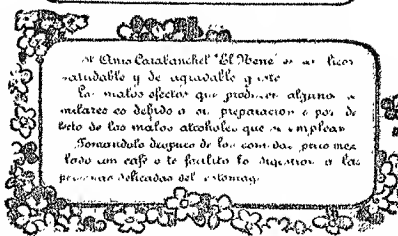 El Anis Carabanchel "El Nene" es un licor
saludable y de agradable gusto
Los malos efectos que producen algunos si
milares es debido a su preparacion y por de
fecto de los malos alcoholes que se emplean
Tomandolo despues de las comidas, puro mez
lado con cafe o te facilita la digestion a las
personas delicadas del estomag